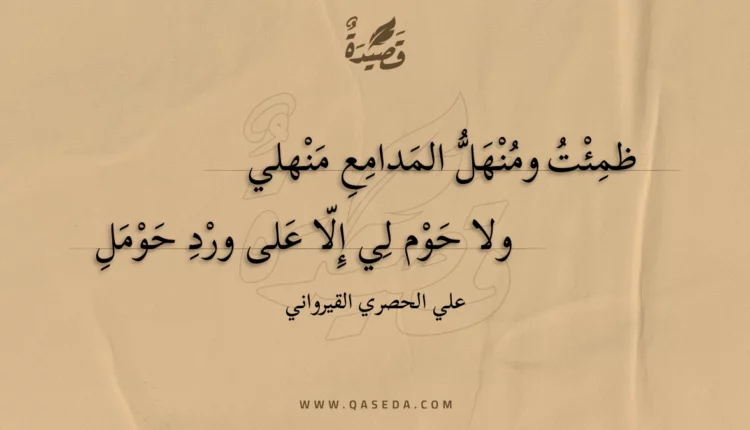 قَصِيدَةٌ
ظَمِئْتُ ومُنْهَلُّ المَدامِعِ مَنْهلي
ولا حَوْم لِي إِلّا عَلى ورْدِ حَوْمَلِ
علي الحصري القيرواني
WWW.QASEDA.COM